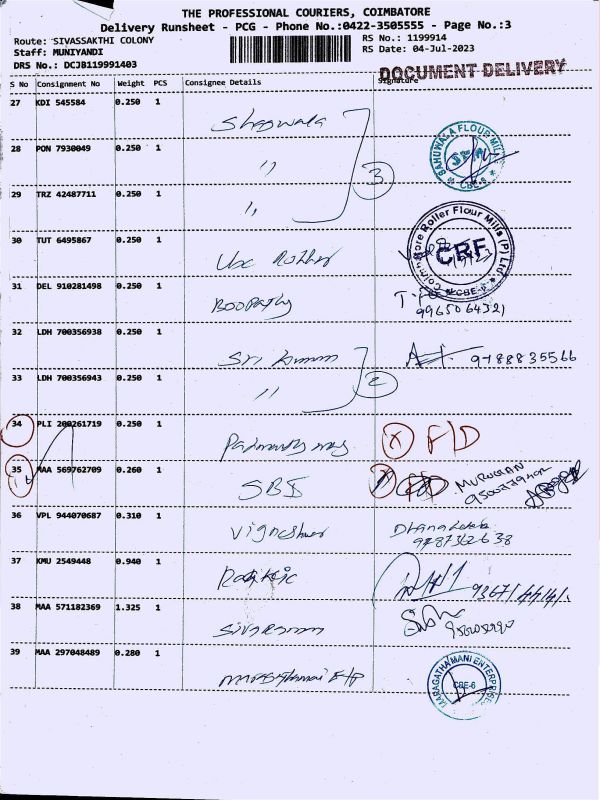 THE PROFESSIONAL COURIERS, COIMBATORE
Delivery Runsheet - PCG - Phone No.:0422-3505555 - Page No.:3
Route: SIVASSAKTHI COLONY
Staff: MUNIYANDI
DRS No.: DCJB119991403
RS No.: 1199914
RS Date: 04-Jul-2023
DOCUMENT DELIVERY
S No Consignment No Weight PCS Consignee Details Signature
27 KDI 545584 0.250 1
28 PON 7930049 0.250 1 "
BAHUWALA FLOUR MILL
CBE-6
3
29 TRZ 42487711 0.250 1 "
30 TUT 6495867 0.250 1
Coimbatore Roller Flour Mills (P) Ltd.
CRF
CBE-6
31 DEL 910281498 0.250 1 Boopathy
9965064321
32 LDH 700356938 0.250 1 Sri 9788835566
2
33 LDH 700356943 0.250 1 "
34 PLI 200261719 0.250 1 X F/D
35 MAA 569762709 0.260 1 SBI MURUGAN
36 VPL 944070687 0.310 1 Vigneshwar
9787362638
37 KMU 2549448 0.940 1
38 MAA 571182369 1.325 1 Sivaraman
39 MAA 297048489 0.280 1
MARAGATHAMANI ENTERPRISES
CBE-6